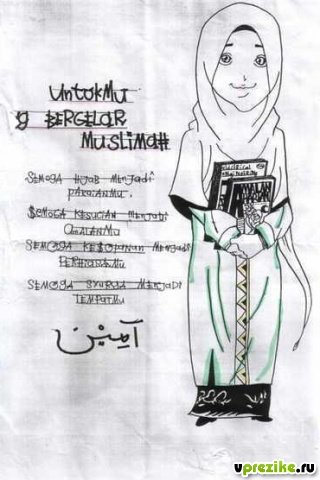 UntukMu
yg BERGELAR
MUSLIMAH
SEMOGA HIJAB MENJADI
PAKAIANMU.
SEMOGA KESUCIAN MENJADI
AMALANMU
SEMOGA KESOPANAN MENJADI
PERHIASANMU
SEMOGA SYURGA MENJADI
TEMPATMU
آمِيْن
uprezike.ru